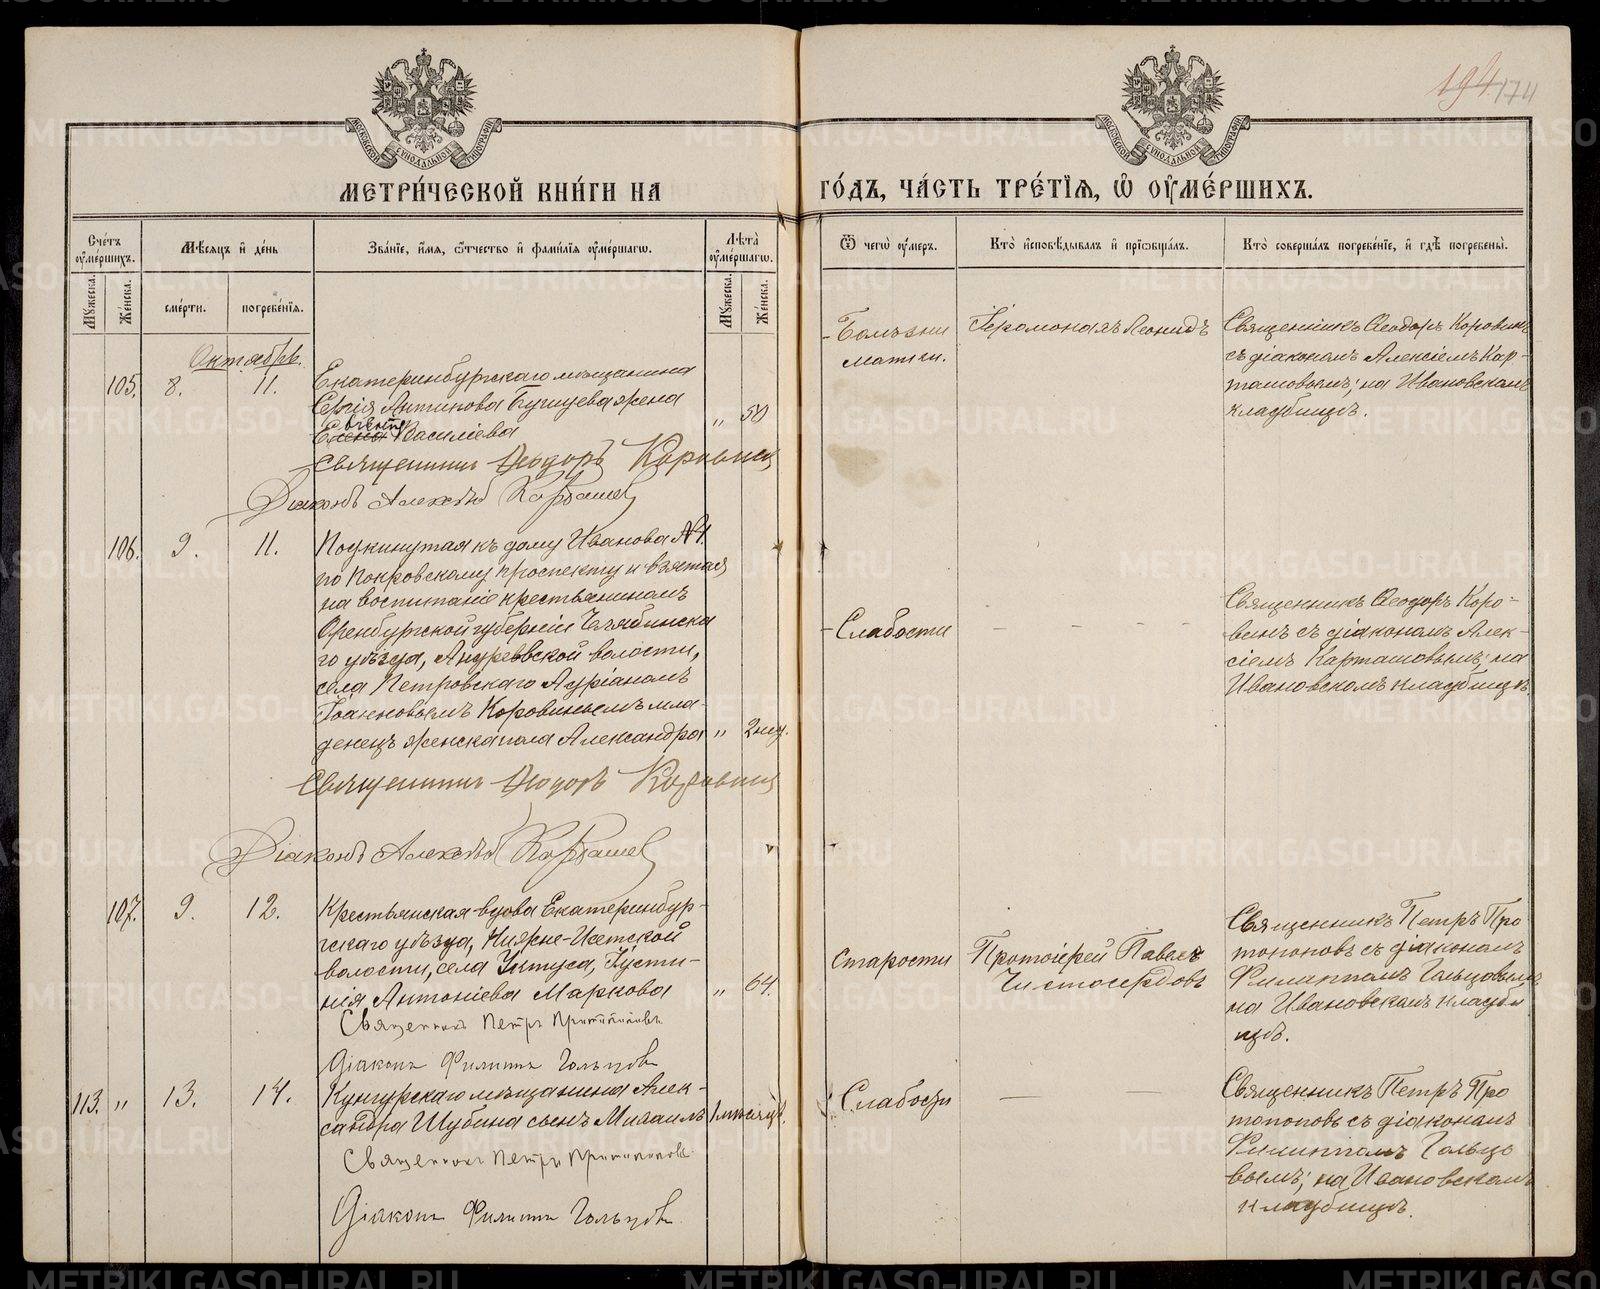 194 174
МОСКОВСКОЙ СѴНОДАЛЬНОЙ ТИПОГРАФІИ
МОСКОВСКОЙ СѴНОДАЛЬНОЙ ТИПОГРАФІИ
МЕТРИ́ЧЕСКОЙ КНИ́ГИ НА
ГО́ДЪ, ЧА́СТЬ ТРЕ́ТІѦ, Ѡ҆ ОУ҆МЕ́РШИХЪ.
Сче́тъ оу҆ме́ршихъ.
Мꙋ́жеска.
Же́нска.
Мѣ́сѧцъ и҆ де́нь
сме́рти.
погребе́нїѧ.
Зва́нїе, и҆́мѧ, ѻ҆́тчество и҆ фами́лїѧ оу҆ме́ршагѡ.
Лѣ́та оу҆ме́ршагѡ.
Мꙋ́жеска.
Же́нска.
Ѿ чегѡ̀ оу҆́меръ.
Кто̀ и҆сповѣ́дывалъ и҆ прїѡбща́лъ.
Кто̀ соверша́лъ погребе́нїе, и҆ гдѣ̀ погребены̀.
Октябрь.
105. 8. 11. Екатеринбургскаго мѣщанина
Сергія Антипова жена
Елена Василіева „ 50
Священникъ Ѳеодоръ Коровинъ
Діаконъ Алексѣй Карташевъ
Болѣзни
матки.
Іеромонахъ Леонидъ
Священникъ Ѳеодоръ Коровинъ
съ діакономъ Алексіемъ Кар-
ташовымъ; на Ивановскомъ
кладбищѣ.
106. 9. 11. Подкинутая къ дому Иванова №1.
по Покровскому проспекту и взятая
на воспитаніе крестьяниномъ
Оренбургской губерніи Челябинска
го уѣзда, Андреевской волости,
села Петровскаго Адріаномъ
Іоанновымъ Коровинымъ мла-
денецъ женска пола Александра „ 2 нед.
Священникъ Ѳеодоръ Коровинъ
Діаконъ Алексѣй Карташевъ
Слабости
Священникъ Ѳеодоръ Коро-
винъ съ діакономъ Алек-
сіемъ Карташовымъ; на
Ивановскомъ кладбищѣ.
107. 9. 12. Крестьянская вдова Екатеринбур-
гскаго уѣзда, Нижне-Исетской
волости, села Уктуса, Іусти-
нія Антоніева Маркова „ 64.
Священникъ Петръ Протопоповъ
Діаконъ Филиппъ Гольцовъ
Старости
Протоіерей Павелъ
Чистосердовъ
Священникъ Петръ Про
топоповъ съ діакономъ
Филиппомъ Гольцовымъ;
на Ивановскомъ кладби
щѣ.
113. „ 13. 14. Кунгурскаго мѣщанина Алек-
сандра Шубина сынъ Михаилъ 1 мѣсяцъ.
Священникъ Петръ Протопоповъ
Діаконъ Филиппъ Гольцовъ
Слабости
Священникъ Петръ Про
топоповъ съ діакономъ
Филиппомъ Гольцо
вымъ; на Ивановскомъ
кладбищѣ.
METRIKI.GASO-URAL.RU